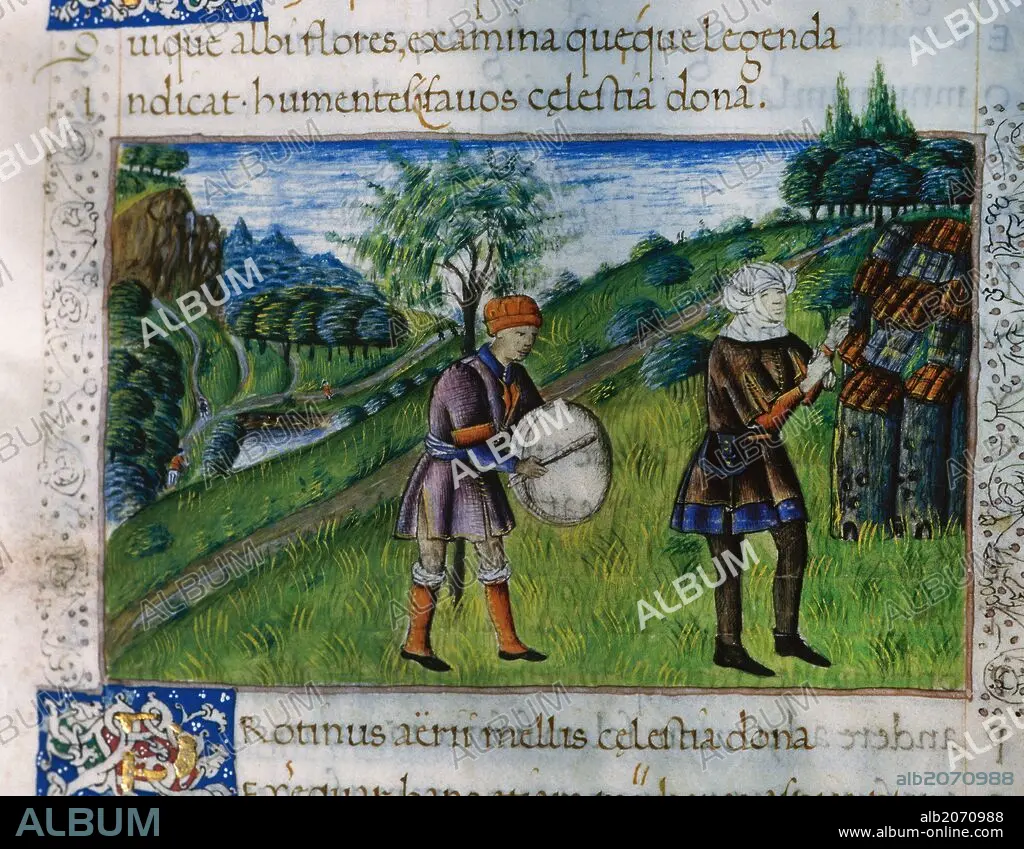 uique albi flores, examina quęque legenda
ndicat. humentesq; fauos cęlestia dona.
Rotinus aërii mellis cęlestia dona
alb2070988
ALBUM
alb2070988
www.album-online.com